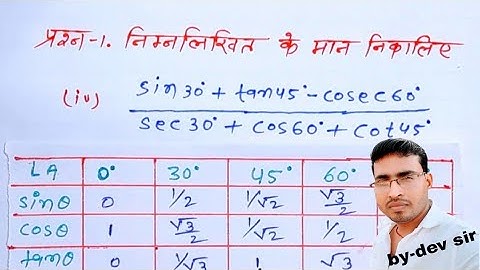 प्रश्न-1. निम्नलिखित के मान निकालिए
(iv) sin30° + tan45° - cosec60°
sec30° + cos60° + cot45°
LA 0° 30° 45° 60°
sinθ 0 1/2 1/√2 √3/2
cosθ 1 √3/2 1/√2 1/2
tanθ 0 1/√3 1 √3
by-dev sir